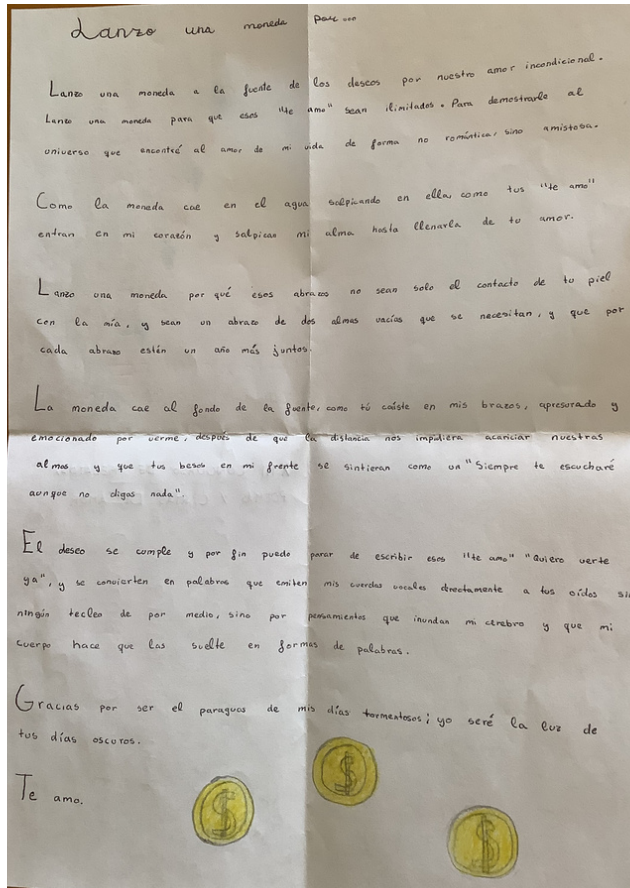 Lanzo una moneda por...
Lanzo una moneda a la fuente de los deseos por nuestro amor incondicional.
Lanzo una moneda para que esos "te amo" sean ilimitados. Para demostrarle al
universo que encontré al amor de mi vida de forma no romántica, sino amistosa.
Como la moneda cae en el agua salpicando en ella, como tus "te amo"
entran en mi corazón y salpican mi alma hasta llenarla de tu amor.
Lanzo una moneda por qué esos abrazos no sean solo el contacto de tu piel
con la mía, y sean un abrazo de dos almas vacías que se necesitan, y que por
cada abrazo estén un año más juntos.
La moneda cae al fondo de la fuente, como tú caíste en mis brazos, apresurado y
emocionado por verme, después de que la distancia nos impidiera acariciar nuestras
almas y que tus besos en mi frente se sintieran como un "Siempre te escucharé
aunque no digas nada".
El deseo se cumple y por fin puedo parar de escribir esos "te amo" "Quiero verte
ya", y se convierten en palabras que emiten mis cuerdas vocales directamente a tus oídos sin
ningún tecleo de por medio, sino por pensamientos que inundan mi cerebro y que mi
cuerpo hace que las suelte en formas de palabras.
Gracias por ser el paraguas de mis días tormentosos; yo seré la luz de
tus días oscuros.
Te amo.
$ $ $